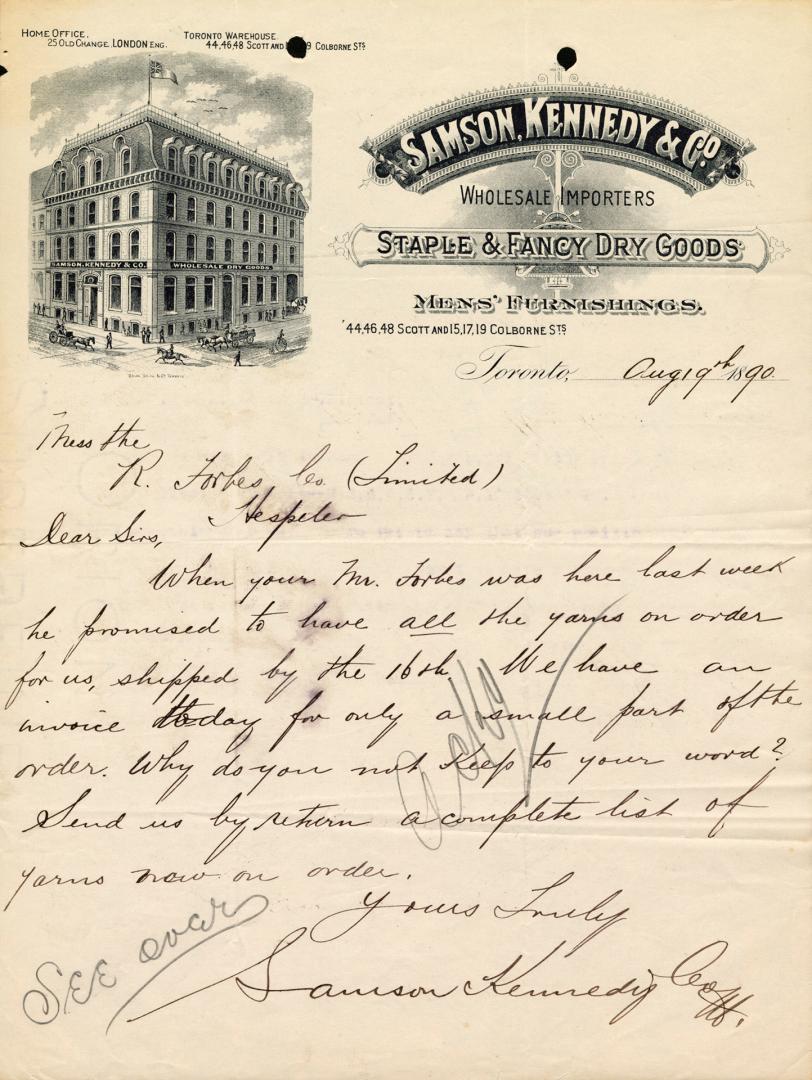 HOME OFFICE.
25 OLD CHANGE, LONDON ENG.
TORONTO WAREHOUSE
44,46,48 SCOTT AND 9 COLBORNE STS
SAMSON, KENNEDY & CO
WHOLESALE IMPORTERS
STAPLE & FANCY DRY GOODS
MENS' FURNISHINGS.
44,46,48 SCOTT AND 15,17,19 COLBORNE STS
SAMSON, KENNEDY & CO.
WHOLESALE DRY GOODS.
Toronto, Aug 19th 1890
Mess the
R. Forbes Co. (Limited)
Hespeler
Dear Sirs,
When your Mr. Forbes was here last week
he promised to have all the yarns on order
for us, shipped by the 16th. We have an
invoice today for only a small part of the
order. Why do you not keep to your word?
Send us by return a complete list of
yarns now on order.
Yours Truly
Samson Kennedy Co
SEE over